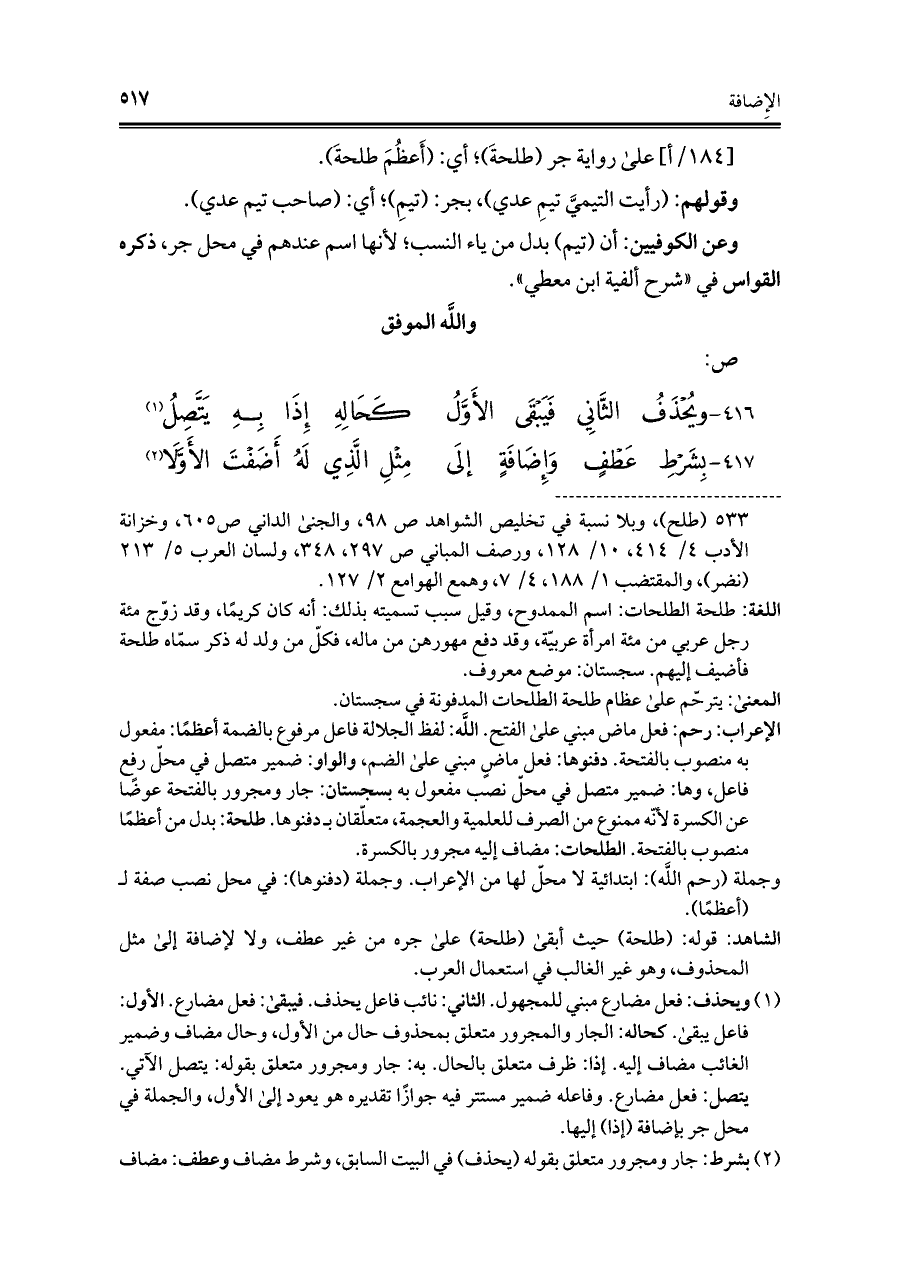 الإضافة ٥١٧
[١٨٤/ أ] علىٰ رواية جر (طلحةَ)؛ أي: (أَعظُمَ طلحةَ).
وقولهم: (رأيت التيميَّ تيمِ عدي)، بجر: (تيمِ)؛ أي: (صاحب تيم عدي).
وعن الكوفيين: أن (تيم) بدل من ياء النسب؛ لأنها اسم عندهم في محل جر، ذكره
القواس في «شرح ألفية ابن معطي».
واللَّه الموفق
ص:
٤١٦-ويُحْذَفُ الثَّانِي فَيَبْقَى الأَوَّلُ كَحَالِهِ إِذَا بِـهِ يَتَّصِلُ(١)
٤١٧-بِشَرْطِ عَطْفٍ وَإِضَافَةٍ إِلَى مِثْلِ الَّذِي لَهُ أَضَفْتَ الأَوَّلَا(٢)
٥٣٣ (طلح)، وبلا نسبة في تخليص الشواهد ص ٩٨، والجنىٰ الداني ص٦٠٥، وخزانة
الأدب ٤/ ٤١٤، ١٠/ ١٢٨، ورصف المباني ص ٢٩٧، ٣٤٨، ولسان العرب ٥/ ٢١٣
(نضر)، والمقتضب ١/ ١٨٨، ٤/ ٧، وهمع الهوامع ٢/ ١٢٧.
اللغة: طلحة الطلحات: اسم الممدوح، وقيل سبب تسميته بذلك: أنه كان كريمًا، وقد زوّج مئة
رجل عربي من مئة امرأة عربيّة، وقد دفع مهورهن من ماله، فكلّ من ولد له ذكر سمّاه طلحة
فأضيف إليهم. سجستان: موضع معروف.
المعنىٰ: يترحّم علىٰ عظام طلحة الطلحات المدفونة في سجستان.
الإعراب: رحم: فعل ماض مبني علىٰ الفتح. اللَّه: لفظ الجلالة فاعل مرفوع بالضمة أعظمًا: مفعول
به منصوب بالفتحة. دفنوها: فعل ماضٍ مبني علىٰ الضم، والواو: ضمير متصل في محلّ رفع
فاعل، وها: ضمير متصل في محلّ نصب مفعول به بسجستان: جار ومجرور بالفتحة عوضًا
عن الكسرة لأنّه ممنوع من الصرف للعلمية والعجمة، متعلّقان بـدفنوها. طلحة: بدل من أعظمًا
منصوب بالفتحة. الطلحات: مضاف إليه مجرور بالكسرة.
وجملة (رحم اللَّه): ابتدائية لا محلّ لها من الإعراب. وجملة (دفنوها): في محل نصب صفة لـ
(أعظمًا).
الشاهد: قوله: (طلحة) حيث أبقىٰ (طلحة) علىٰ جره من غير عطف، ولا لإضافة إلىٰ مثل
المحذوف، وهو غير الغالب في استعمال العرب.
(١) ويحذف: فعل مضارع مبني للمجهول. الثاني: نائب فاعل يحذف. فيبقىٰ: فعل مضارع. الأول:
فاعل يبقىٰ. كحاله: الجار والمجرور متعلق بمحذوف حال من الأول، وحال مضاف وضمير
الغائب مضاف إليه. إذا: ظرف متعلق بالحال. به: جار ومجرور متعلق بقوله: يتصل الآتي.
يتصل: فعل مضارع. وفاعله ضمير مستتر فيه جوازًا تقديره هو يعود إلىٰ الأول، والجملة في
محل جر بإضافة (إذا) إليها.
(٢) بشرط: جار ومجرور متعلق بقوله (يحذف) في البيت السابق، وشرط مضاف وعطف: مضاف